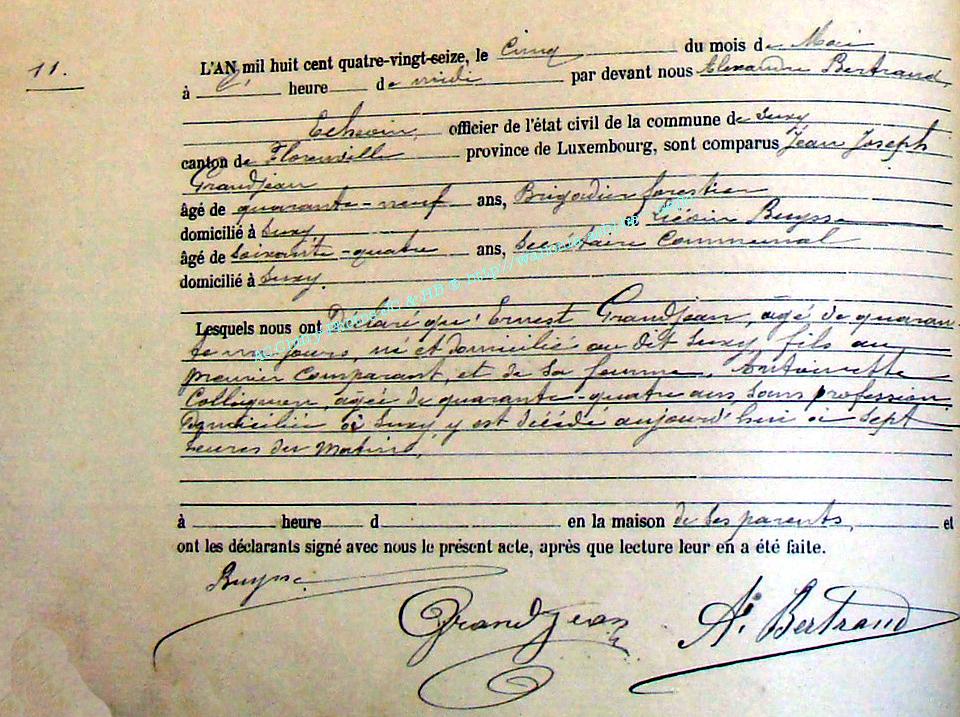 11.
L'AN mil huit cent quatre-vingt-seize, le Cinq du mois de Mai
à heure de midi par devant nous Alexandre Bertrand,
Echevin, officier de l'état civil de la commune de Suxy
canton de Florenville province de Luxembourg, sont comparus Jean Joseph
Grandjean
âgé de quarante-neuf ans, Brigadier forestier
domicilié à Suxy et Buysse
âgé de soixante-quatre ans, Secrétaire Communal
domicilié à Suxy.
Lesquels nous ont Déclaré que Ernest Grandjean, âgé de quaran-
te jours, né et domicilié au dit Suxy fils du
premier comparant, et de sa femme, Antoinette
âgée de quarante-quatre ans, sans profession,
Domiciliée à Suxy y est décédé aujourd'hui à sept
heures du matin.
à heure d en la maison de ses parents, et
ont les déclarants signé avec nous le présent acte, après que lecture leur en a été faite.
Buysse
Grandjean
A. Bertrand